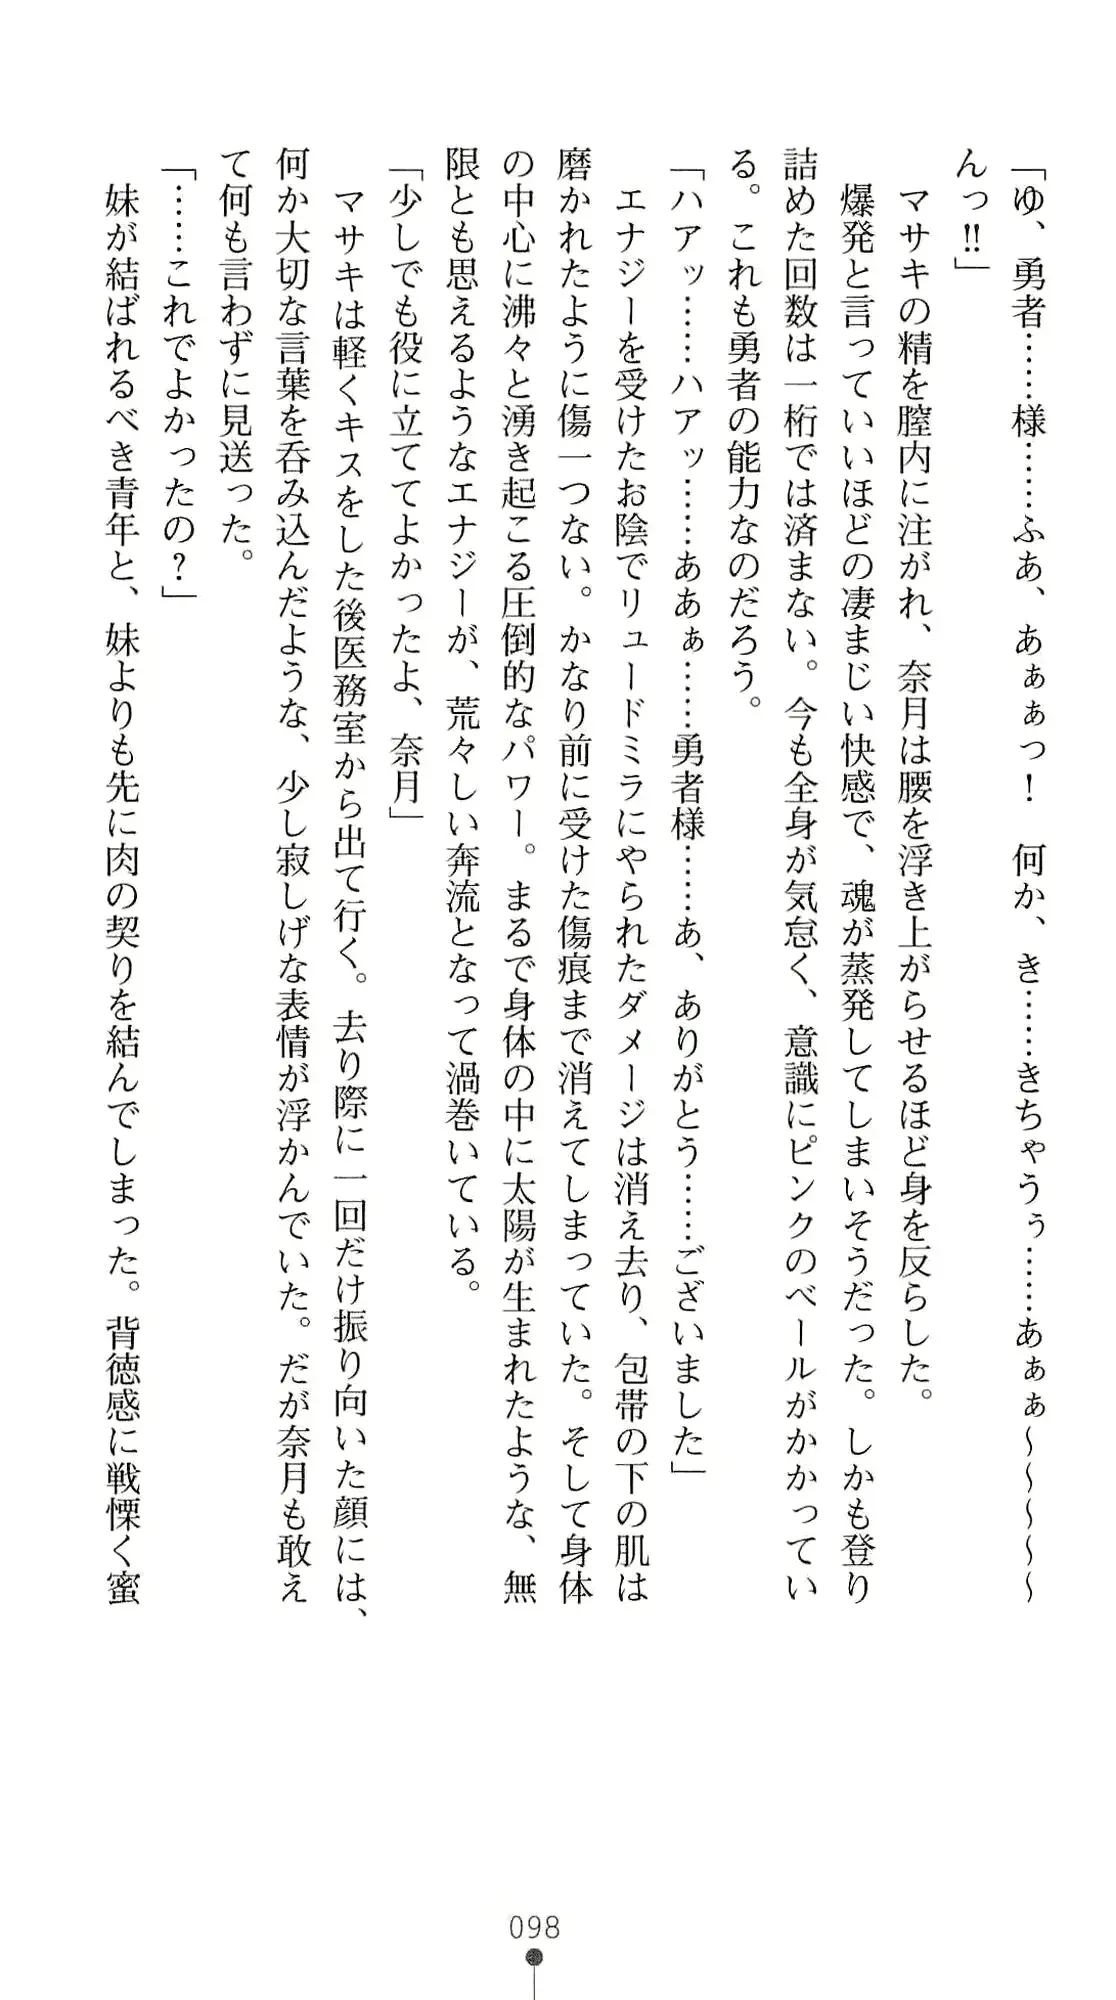 「ゆ、勇者……様……ふあ、あぁぁっ！　何か、き……きちゃうぅ……あぁぁ～～～～～
んっ!!」
　マサキの精を膣内に注がれ、奈月は腰を浮き上がらせるほど身を反らした。
　爆発と言っていいほどの凄まじい快感で、魂が蒸発してしまいそうだった。しかも登り
詰めた回数は一桁では済まない。今も全身が気怠く、意識にピンクのベールがかかってい
る。これも勇者の能力なのだろう。
「ハアッ……ハアッ……ああぁ……勇者様……あ、ありがとう……ございました」
　エナジーを受けたお陰でリュードミラにやられたダメージは消え去り、包帯の下の肌は
磨かれたように傷一つない。かなり前に受けた傷痕まで消えてしまっていた。そして身体
の中心に沸々と湧き起こる圧倒的なパワー。まるで身体の中に太陽が生まれたような、無
限とも思えるようなエナジーが、荒々しい奔流となって渦巻いている。
「少しでも役に立ててよかったよ、奈月」
　マサキは軽くキスをした後医務室から出て行く。去り際に一回だけ振り向いた顔には、
何か大切な言葉を呑み込んだような、少し寂しげな表情が浮かんでいた。だが奈月も敢え
て何も言わずに見送った。
「……これでよかったの？」
　妹が結ばれるべき青年と、妹よりも先に肉の契りを結んでしまった。背徳感に戦慄く蜜
098